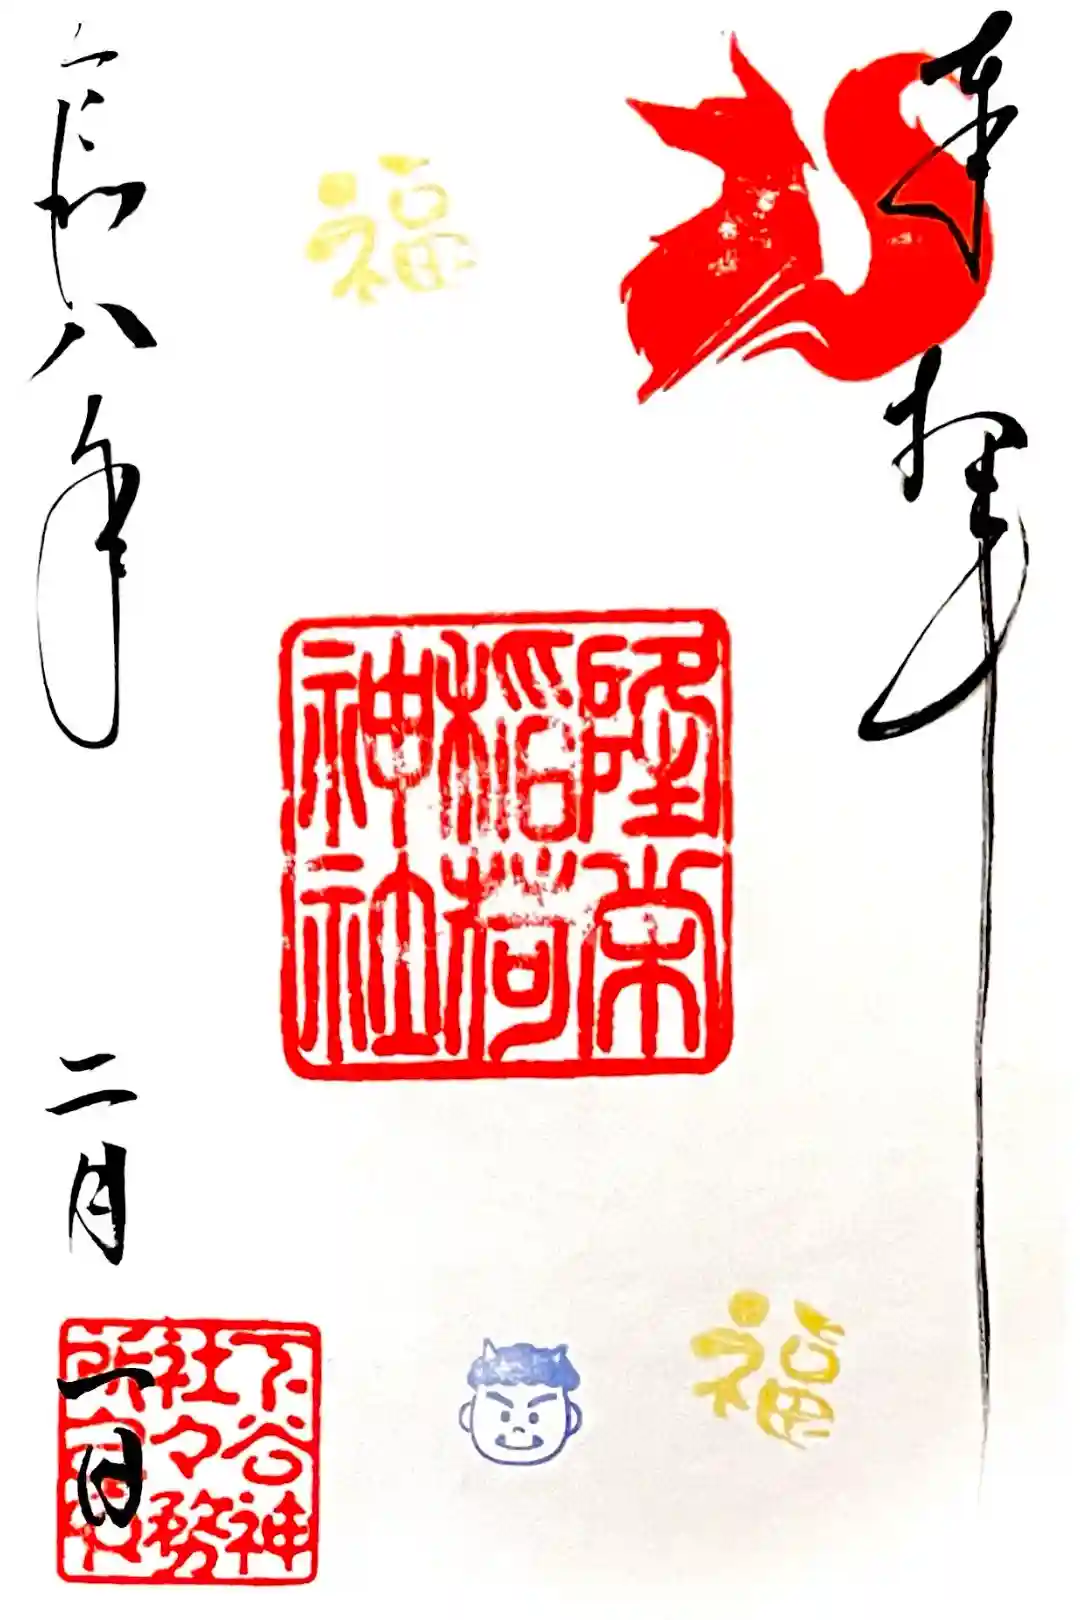 奉拝
福
隆栄
稲荷
神社
令和八年
二月一日
下谷神
社々務
福